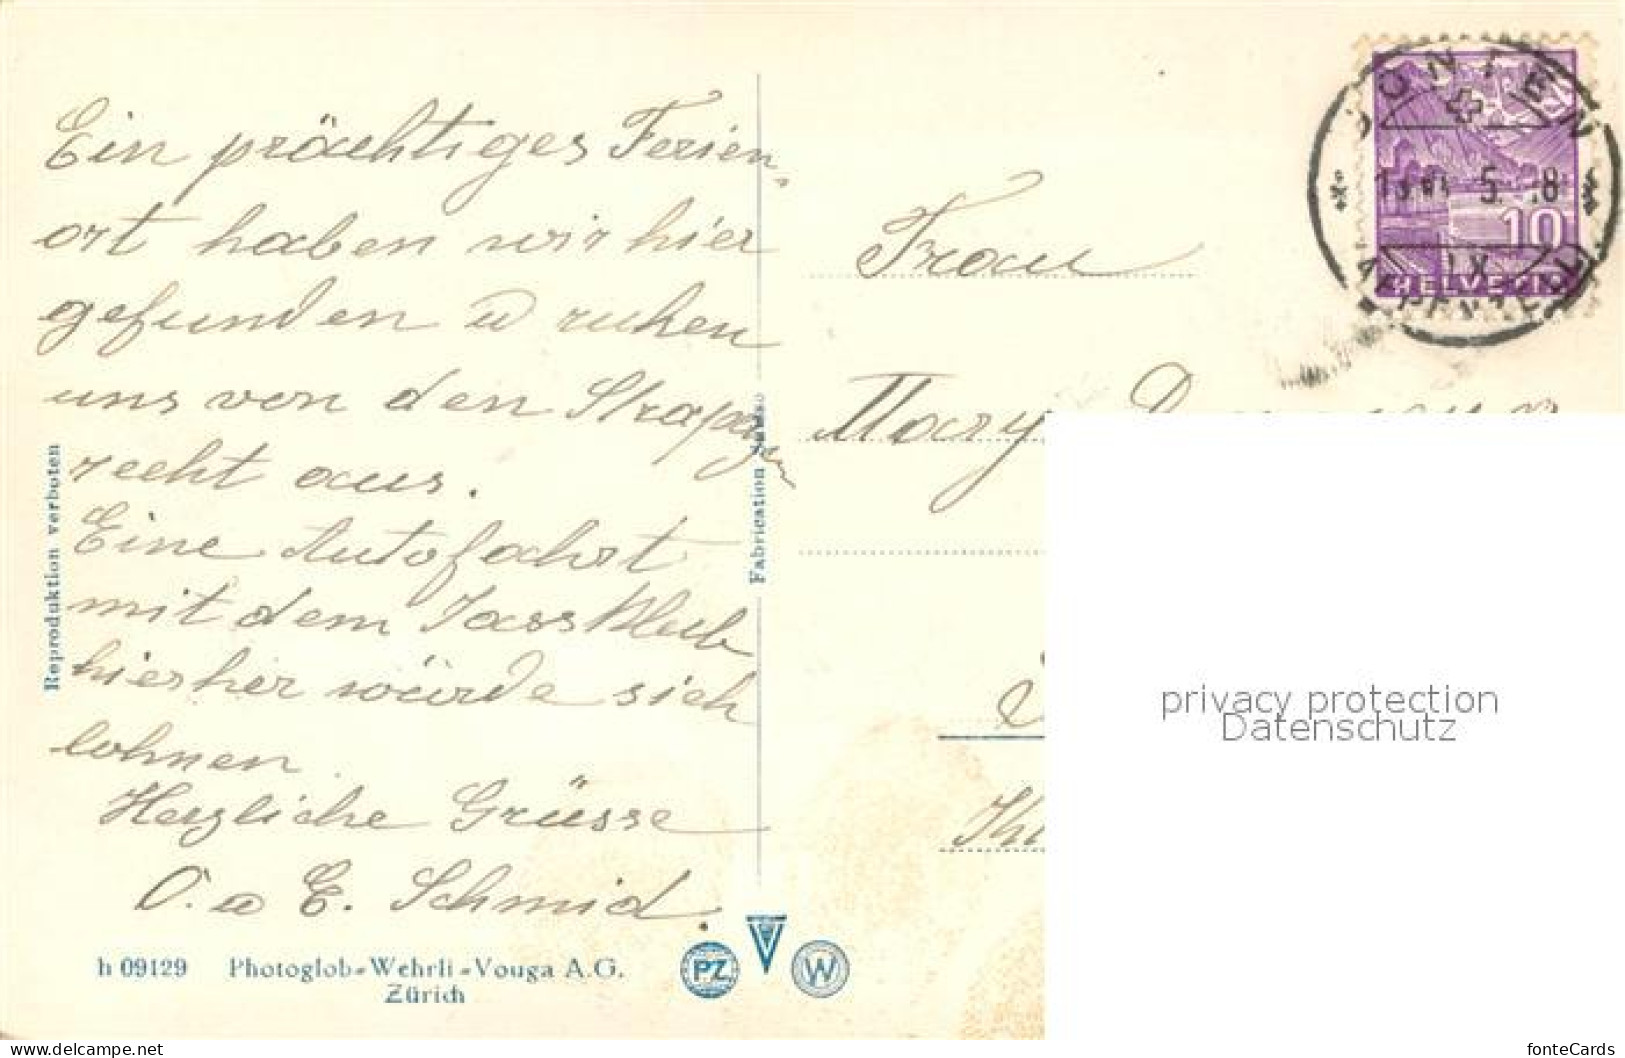 Ein prächtiges Ferien-
ort haben wir hier
gefunden u ruhen
uns von den Strapazen
recht aus.
Eine Autofahrt
mit dem Jass Klub
hierher würde sich
lohnen.
Herzliche Grüsse
O. u E. Schmid.
Reproduktion verboten
h 09129 Photoglob-Wehrli-Vouga A.G.
Zürich
PZ V W
Fabrication Suisse
GONTEN
IX
APPENZELL
10
HELVETIA
Frau
Mary
privacy protection
Datenschutz
www.delcampe.net
fonteCards